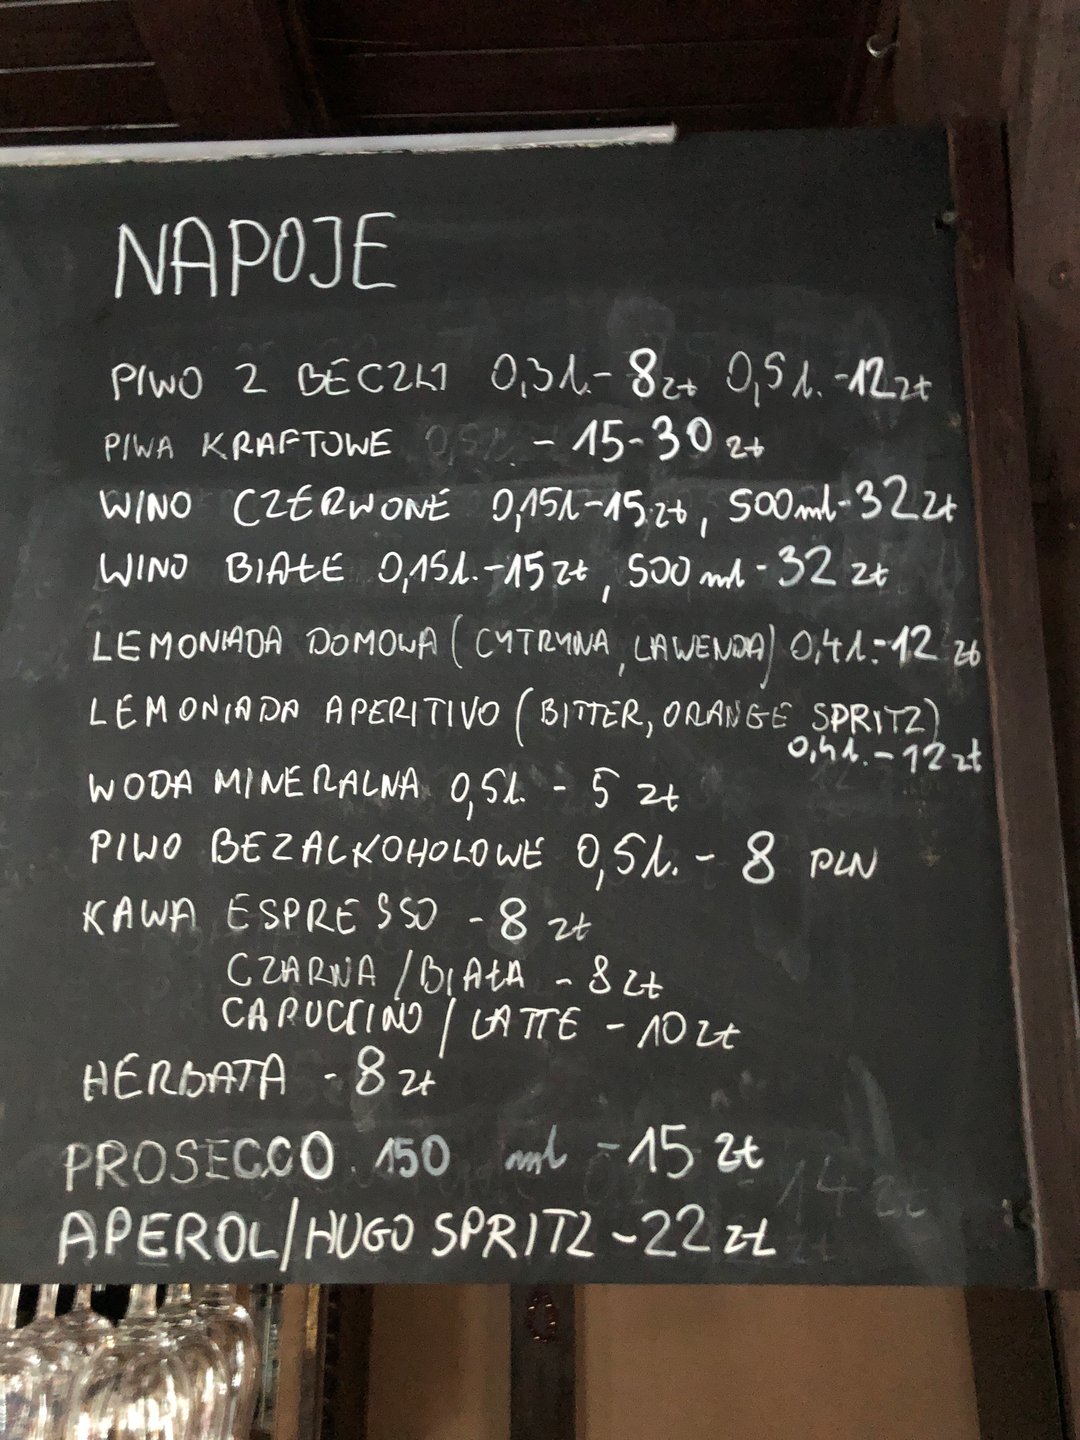 NAPOJE
PIWO Z BECZKI 0,3l.- 8zł 0,5l.-12zł
PIWA KRAFTOWE 0,5l. - 15-30 zł
WINO CZERWONE 0,15l-15zł, 500ml-32zł
WINO BIAŁE 0,15l.-15zł, 500ml-32 zł
LEMONIADA DOMOWA (CYTRYNA, LAWENDA) 0,4l.-12 zł
LEMONIADA APERITIVO (BITTER, ORANGE SPRITZ)
0,4l.-12zł
WODA MINERALNA 0,5l. - 5 zł
PIWO BEZALKOHOLOWE 0,5l. - 8 PLN
KAWA ESPRESSO - 8 zł
CZARNA/BIAŁA - 8zł
CAPUCCINO/LATTE - 10zł
HERBATA - 8zł
PROSECCO 150 ml - 15 zł
APEROL/HUGO SPRITZ - 22 zł